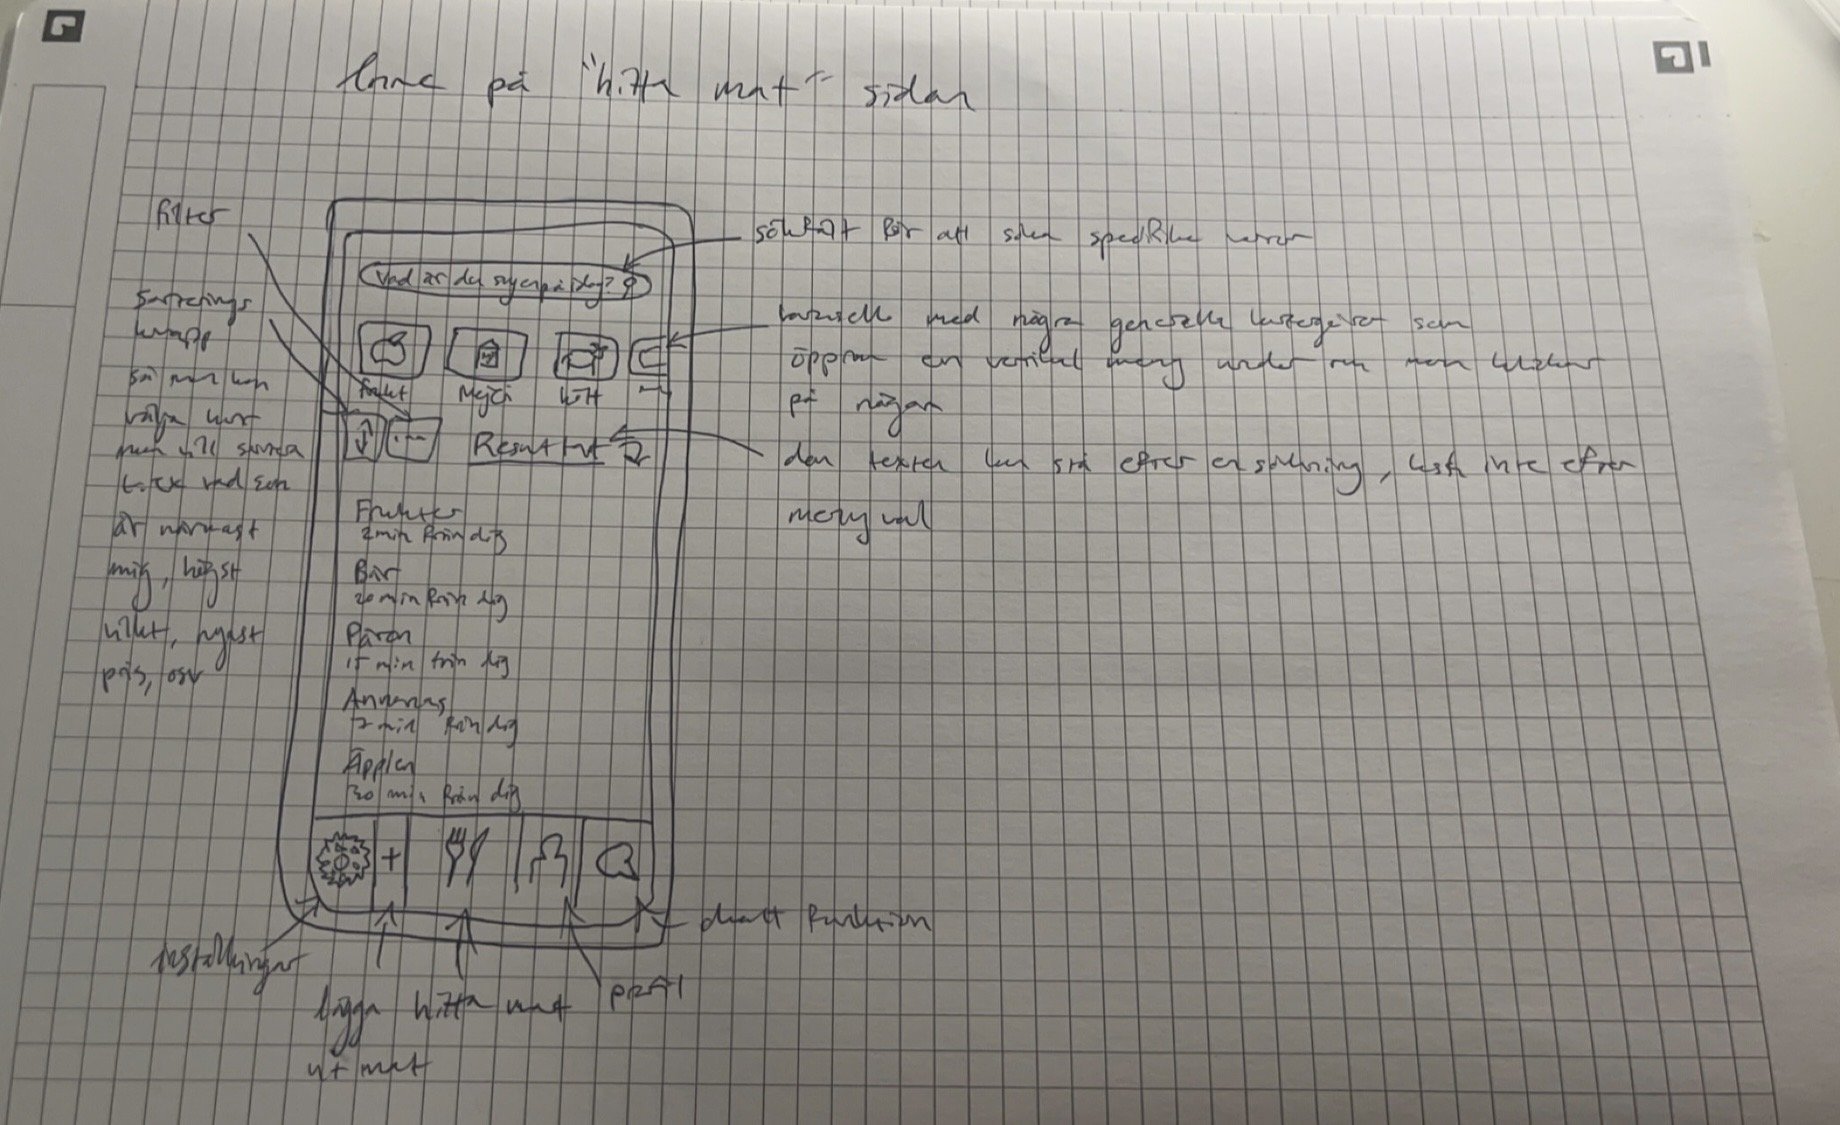 inne på "hitta mat" sidan
filter
sökfält för att söka specifika varor
Vad är du sugen på idag?
Sorterings
knapp
så man kan
välja hur
man vill sortera
t.ex vad som
är närmast
mig, högst
vikt, nyast
pris, osv
karusell med några generella kategorier som
öppnar en vertikal meny under om man klickar
på någon
Frukt
Mejeri
Kött
Resultat
den texten kan stå efter en sökning, fast inte efter
meny val
Frukter
2 min från dig
Bär
20 min från dig
Päron
15 min från dig
Annanas
min från dig
Äpplen
30 min från dig
+
inställningar
lägga
ut mat
hitta mat
profil
chatt funktion